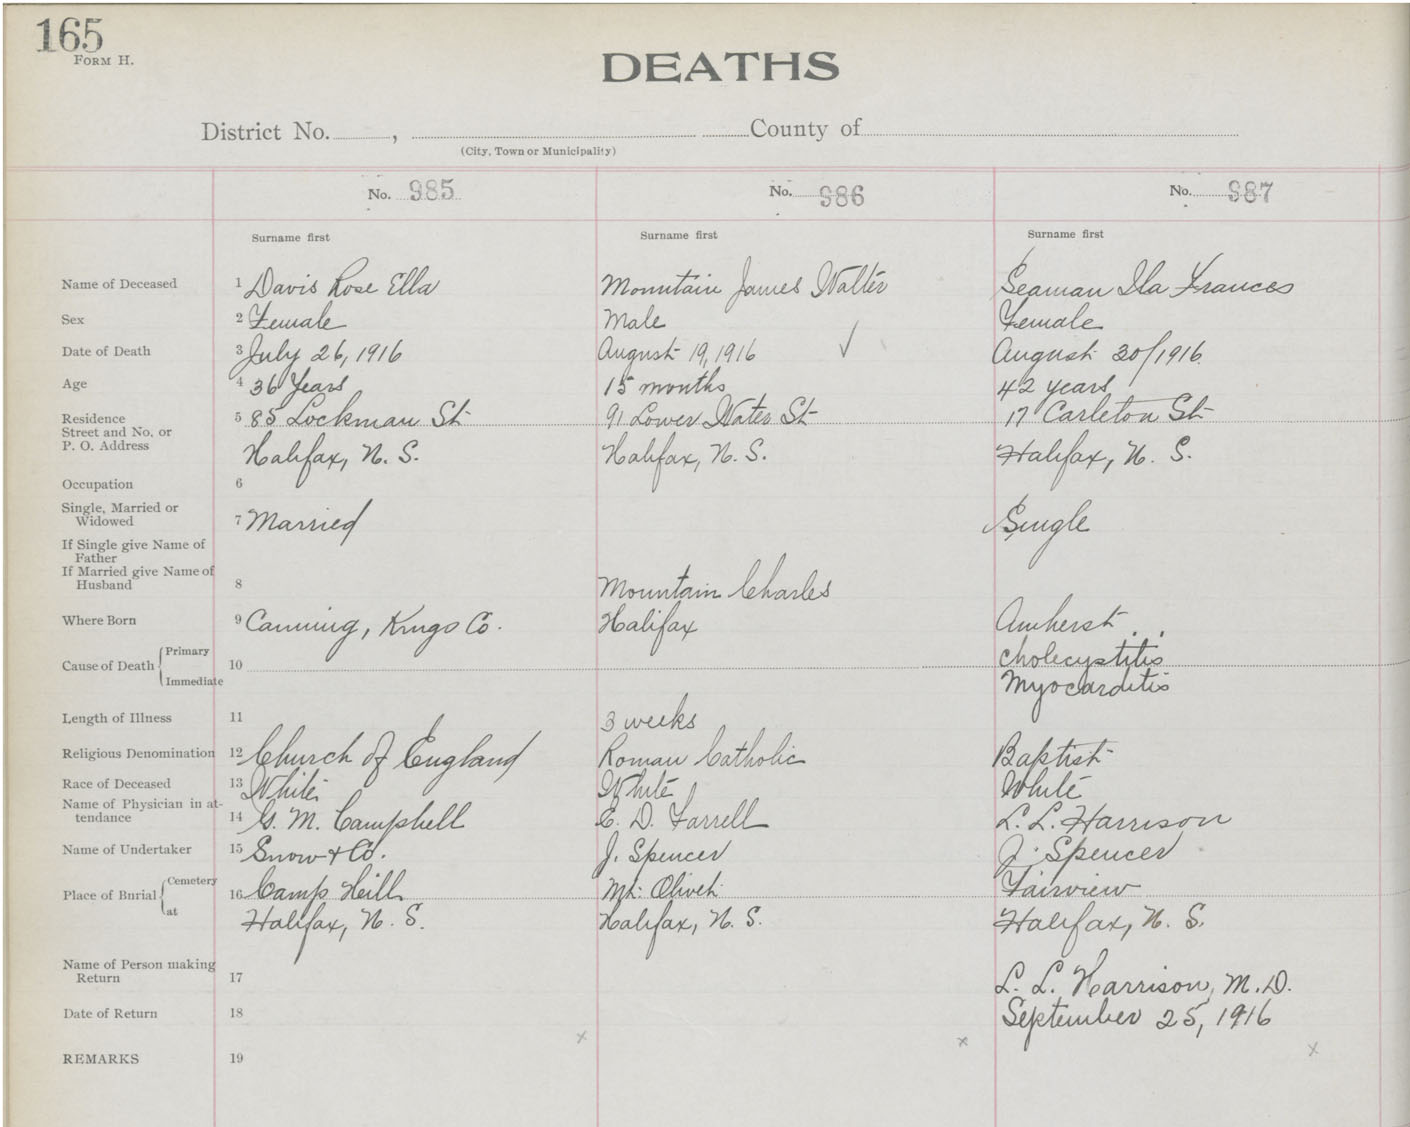 165
FORM H.
DEATHS
District No. , County of
(City, Town or Municipality)
No. 985 No. 986 No. 987
Surname first Surname first Surname first
Name of Deceased 1 Davis Rose Ella Mountain James Walter Seaman Ila Frances
Sex 2 Female Male Female
Date of Death 3 July 26, 1916 August 19, 1916 August 20/1916
Age 4 36 Years 15 months 42 years
Residence 5 85 Lockman St 91 Lower Water St 17 Carleton St
Street and No. or
P. O. Address Halifax, N. S. Halifax, N. S. Halifax, N. S.
Occupation 6
Single, Married or
Widowed 7 Married Single
If Single give Name of
Father
If Married give Name of
Husband 8 Mountain Charles
Where Born 9 Canning, Kings Co. Halifax Amherst
Primary cholecystitis
Cause of Death 10
Immediate Myocarditis
Length of Illness 11 3 weeks
Religious Denomination 12 Church of England Roman Catholic Baptist
Race of Deceased 13 White White White
Name of Physician in at-
tendance 14 G. M. Campbell E. D. Farrell L. L. Harrison
Name of Undertaker 15 Snow & Co. J. Spencer J. Spencer
Cemetery
Place of Burial 16 Camp Hill Mt. Olivet Fairview
at Halifax, N. S. Halifax, N. S. Halifax, N. S.
Name of Person making
Return 17 L. L. Harrison, M.D.
Date of Return 18 September 25, 1916
x x x
REMARKS 19